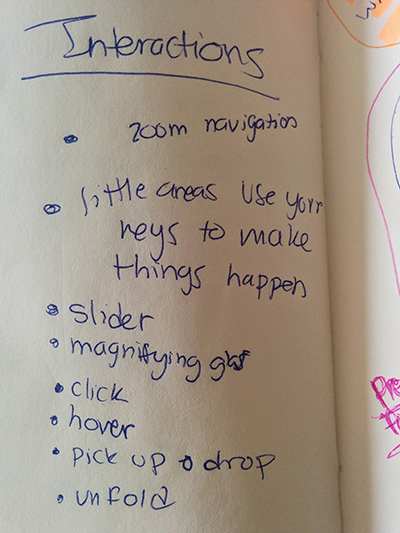 Interactions
• zoom navigation
• little areas use your
keys to make
things happen
• slider
• magnifying
• click
• hover
• pick up & drop
• unfold